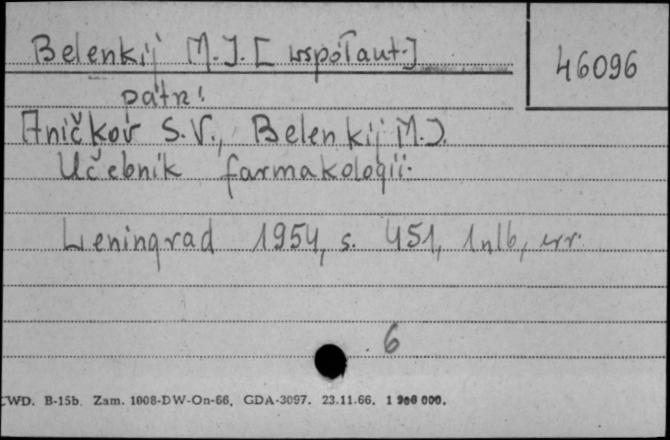 Belenkij M.J. [współaut.]
46096
patrz:
Aničkov S.V., Belenkij M.J.
Učebnik farmakologii.
Leningrad 1954, s. 451, 1nlb, err.
6
CWD. B-15b. Zam. 1008-DW-On-66. GDA-3097. 23.11.66. 1 900 000.